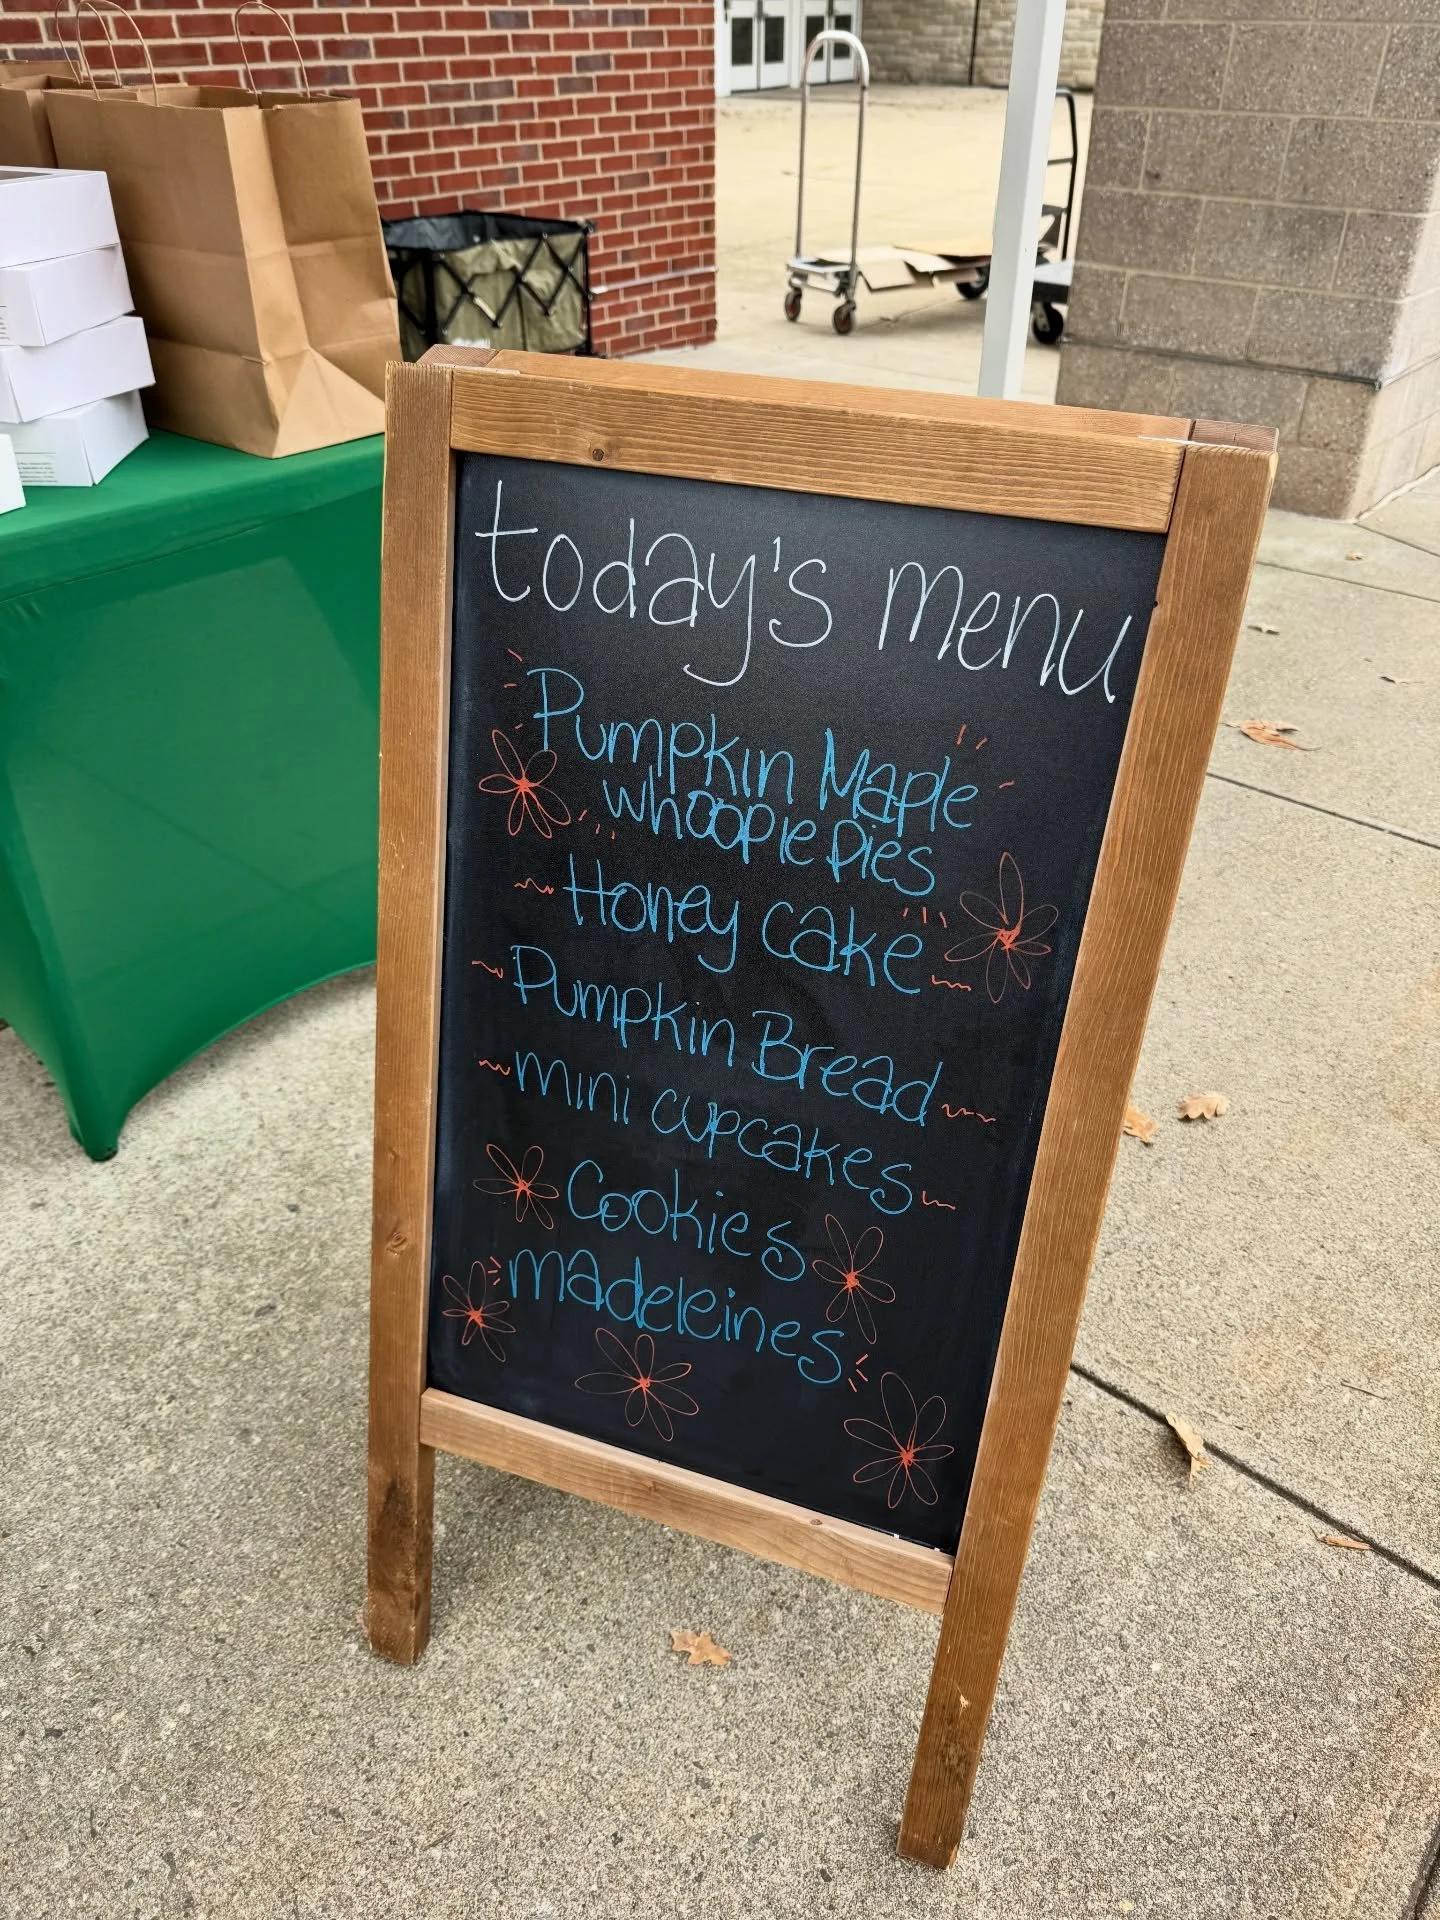 today's menu
Pumpkin Maple
whoopie pies
Honey cake
Pumpkin Bread
mini cupcakes
Cookies
madeleines